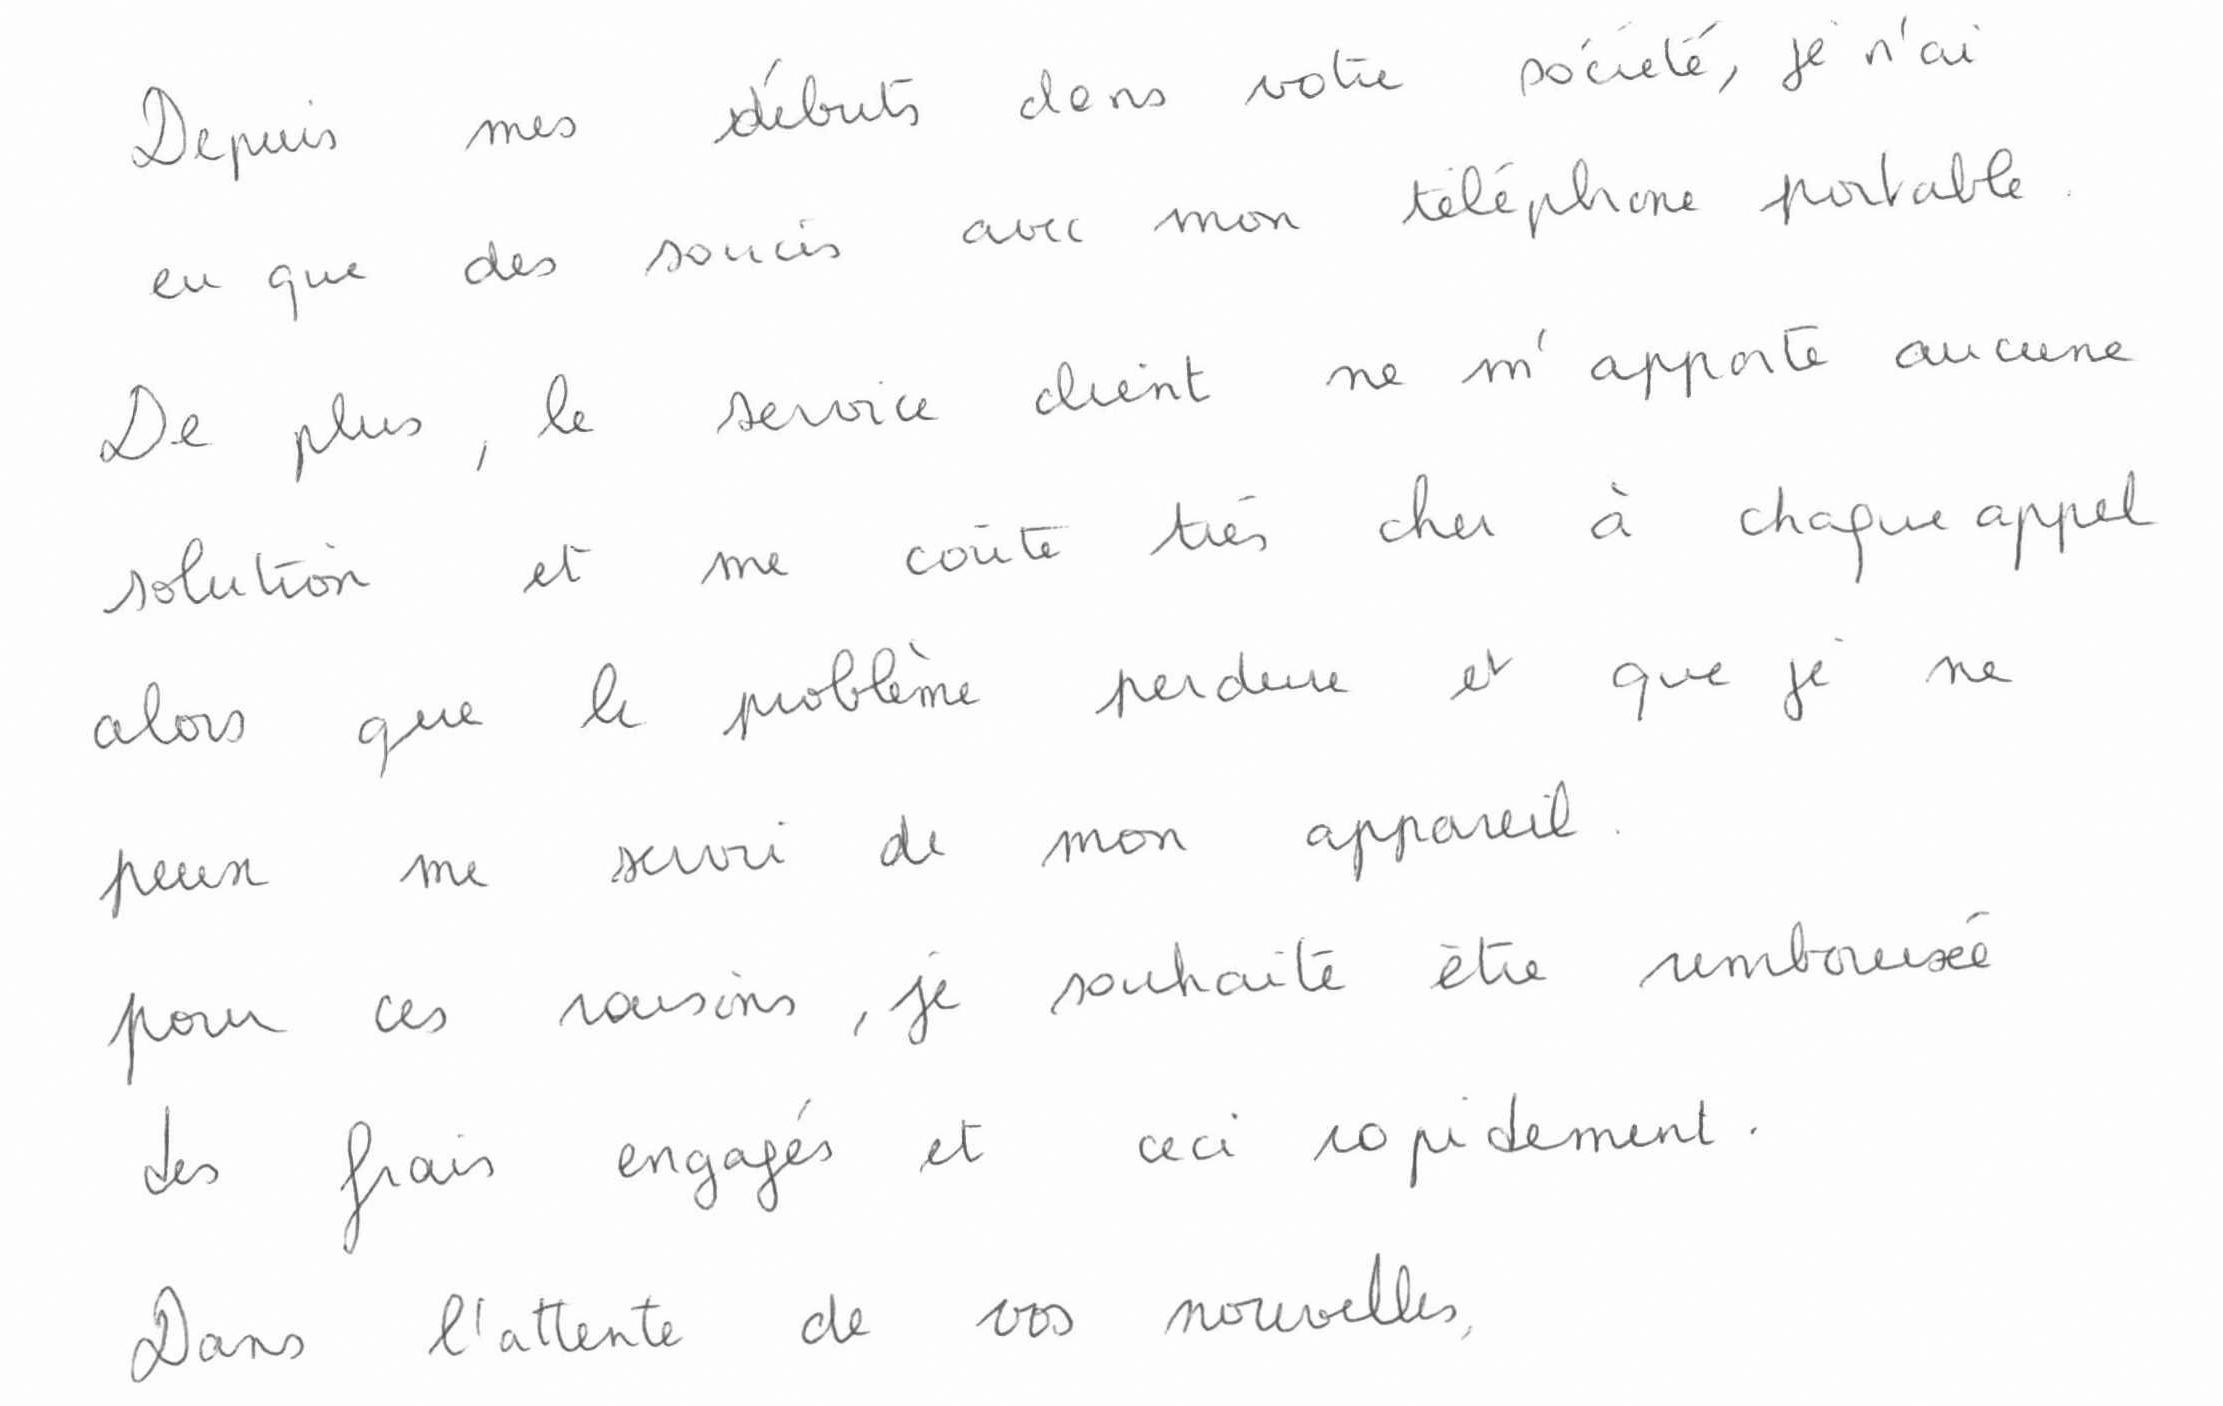 Depuis mes débuts dans votre société, je n'ai
eu que des soucis avec mon téléphone portable.
De plus, le service client ne m'apporte aucune
solution et me coûte très cher à chaque appel
alors que le problème perdure et que je ne
peux me servir de mon appareil.
pour ces raisons, je souhaite être remboursée
des frais engagés et ceci rapidement.
Dans l'attente de vos nouvelles,